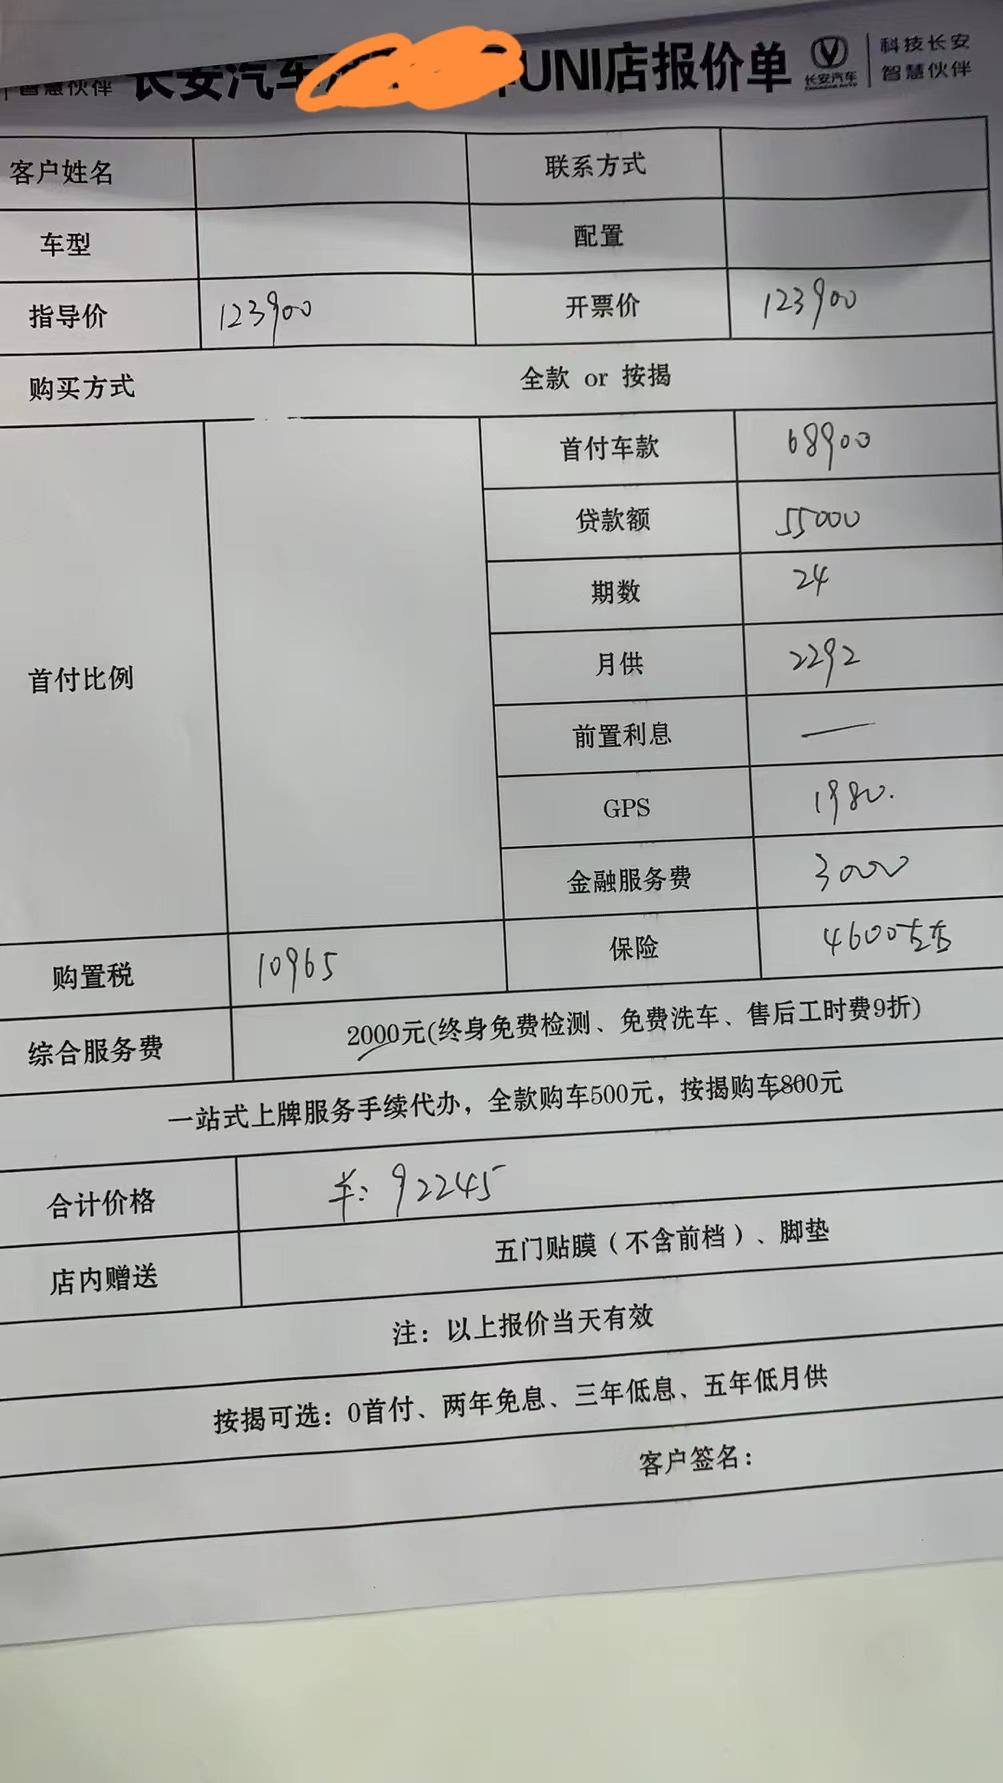 智慧伙伴 长安汽车 UNI店报价单 长安汽车 科技长安
智慧伙伴
客户姓名 联系方式
车型 配置
指导价 123900 开票价 123900
购买方式 全款 or 按揭
首付比例
首付车款 68900
贷款额 55000
期数 24
月供 2292
前置利息 —
GPS 1980.
金融服务费 3000
购置税 10965 保险 4600左右
综合服务费 2000元(终身免费检测、免费洗车、售后工时费9折)
一站式上牌服务手续代办，全款购车500元，按揭购车800元
合计价格 92245
店内赠送 五门贴膜（不含前档）、脚垫
注：以上报价当天有效
按揭可选：0首付、两年免息、三年低息、五年低月供
客户签名：